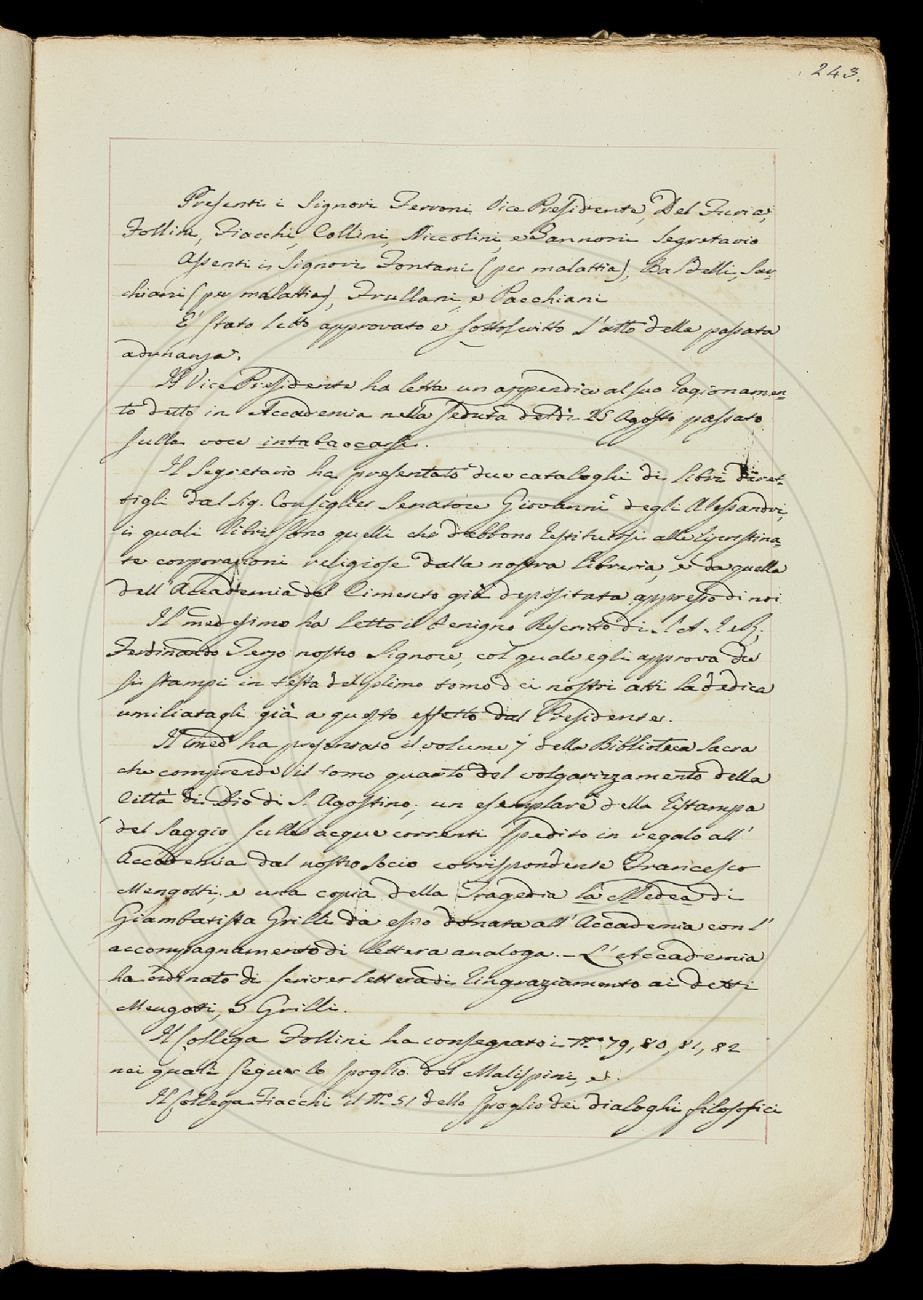 243.
Presenti i Signori Ferroni Vice Presidente, Del Furia,
Follini, Fiacchi, Collini, Niccolini, e Zannoni Segretario
Assenti i Signori Fontani (per malattia), Baldelli, Sar-
chiani (per malattia), Frullani, e Pacchiani
E' stato letto approvato e sottoscritto l'atto della passata
adunanza.
Il Vice Presidente ha letta un appendice al suo ragionamen-
to detto in Accademia nella seduta de dì 25 Agosto passato
sulla voce intabaccarsi.
Il Segretario ha presentato due cataloghi di libri diret-
tigli dal Sig. Consiglier Senatore Giovanni degli Alessandri,
i quali libri sono quelli che debbono restituirsi alle ripristina-
te corporazioni religiose dalla nostra libreria, e da quella
dell'Accademia del Cimento già depositata appresso di noi.
Il medesimo ha letto il benigno Rescritto di S. A. I. e R.
Ferdinando Terzo nostro Signore, col quale egli approva che
si stampi in testa del primo tomo dei nostri atti la dedica
umiliatagli già a questo effetto dal Presidente.
Il med.º ha presentato il volume 7 della Biblioteca Sacra
che comprende il tomo quarto del volgarizzamento della
Città di Dio di S. Agostino; un esemplare della ristampa
del Saggio sulle acque correnti spedito in regalo all'
Accademia dal nostro socio corrispondente Francesco
Mengotti, e una copia della Tragedia la Medea di
Giambatista Grilli da esso donata all'Accademia con l'
accompagnamento di lettera analoga. - L'Accademia
ha ordinato di scriver lettera di ringraziamento ai detti
Mengotti, e Grilli.
Il Collega Follini ha consegnato i N.i 79, 80, 81, 82
nei quali segue lo spoglio del Malispini, e.
Il Collega Fiacchi il N.º 51 dello spoglio dei dialoghi filosofici